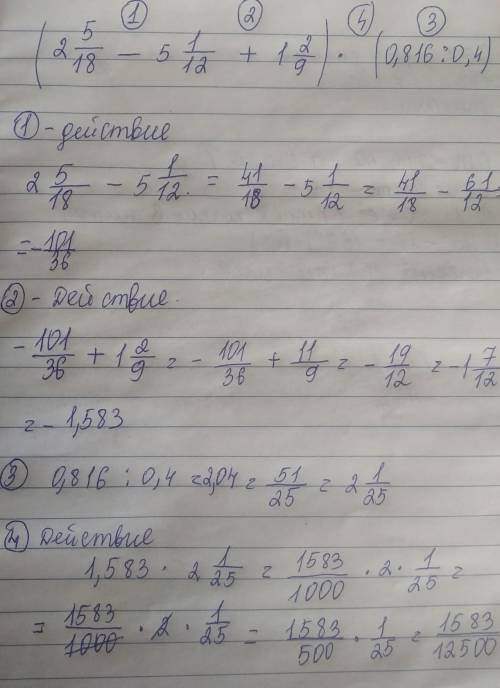 ① ② ④ ③
(2 5/18 − 5 1/12 + 1 2/9) · (0,816 : 0,4)
① - действие
2 5/18 − 5 1/12. = 41/18 − 5 1/12 = 41/18 − 61/12
= − 101/36
② - Действие.
− 101/36 + 1 2/9 = − 101/36 + 11/9 = − 19/12 = −1 7/12
= − 1,583
③ 0,816 : 0,4 = 2,04 = 51/25 = 2 1/25
④ Действие
1,583 · 2 1/25 = 1583/1000 · 2 · 1/25 =
= 1583/1000 · 2 · 1/25 = 1583/500 · 1/25 = 1583/12500